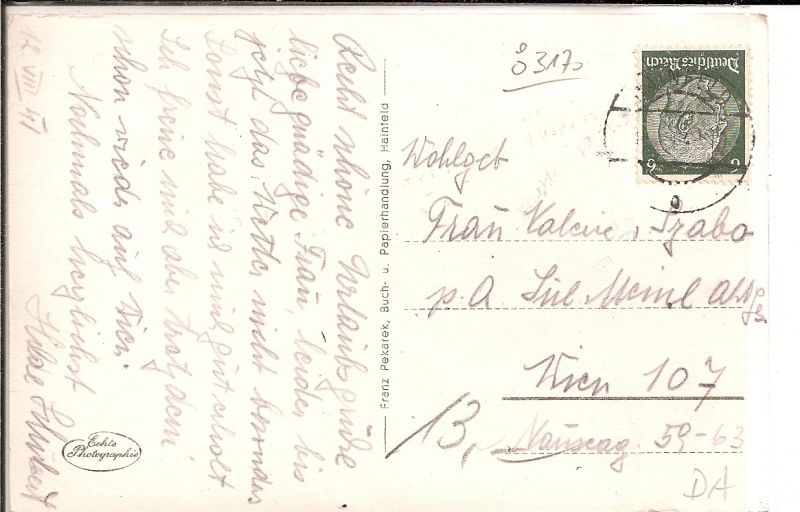 12 VIII 41
Recht schöne Urlaubsgrüße
liebe gnädige Frau, leider bis
jetzt das Wetter nicht besonders
sonst habe ich mich gut erholt
Ich freue mich aber trotzdem
schon wieder auf Wien.
Nochmals herzlichst
Franz Pekarek, Buch- u. Papierhandlung, Hainfeld
Echte
Photographie
Ö 3170
Deutsches Reich
6 6
Wohlgeb
Frau Szabo
p. A Jul. Meinl
Wien 107
13, 59-63
DA